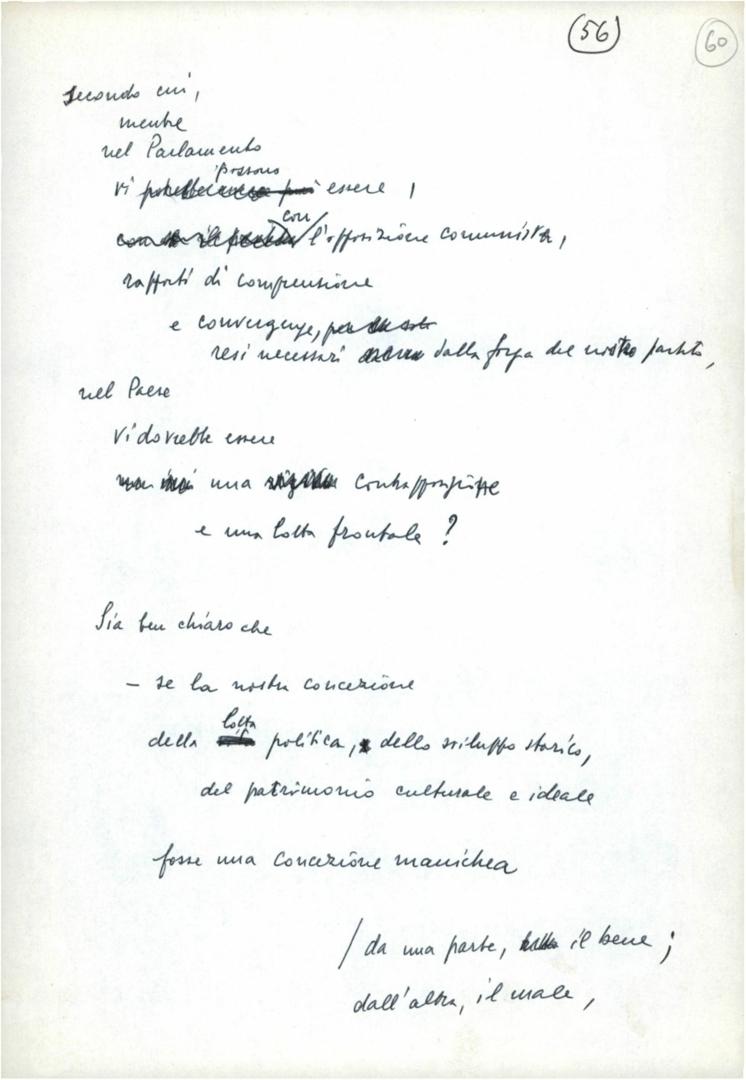 56 60
secondo cui,
mentre
nel Parlamento
possono
vi essere,
con
l'opposizione comunista,
rapporti di comprensione
e convergenze,
resi necessari dalla forza del nostro partito,
nel Paese
vi dovrebbe essere
una contrapposizione
e una lotta frontale?
Sia ben chiaro che
- se la nostra concezione
lotta
della politica, dello sviluppo storico,
del patrimonio culturale e ideale
fosse una concezione manichea
/ da una parte, il bene;
dall'altra, il male,